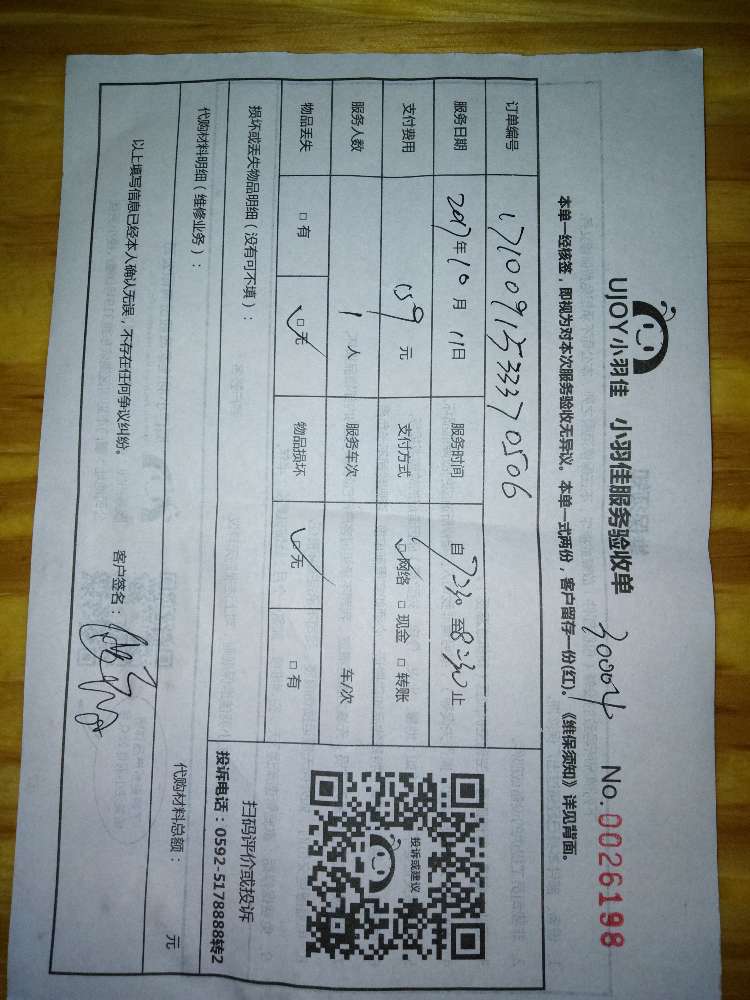 UJOY小羽佳 小羽佳服务验收单 30004 No.0026198
本单一经核签，即视为对本次服务验收无异议。本单一式两份，客户留存一份(红)。《维保须知》详见背面。
订单编号 1710091533370506
服务日期 2017年10月11日 服务时间 自7:30至8:30止
支付费用 159元 支付方式 网络 现金 转账
服务人数 1人 服务车次 车/次
物品丢失 有 无 物品损坏 无 有
投诉或建议
损坏或丢失物品明细（没有可不填）：
扫码评价或投诉
投诉电话：0592-5178888转2
代购材料明细（维修业务）：
代购材料总额： 元
以上填写信息已经本人确认无误，不存在任何争议纠纷。 客户签名：